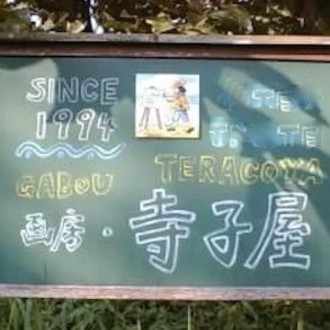 SINCE
1994
GABOU
TERACOYA
画房・寺子屋